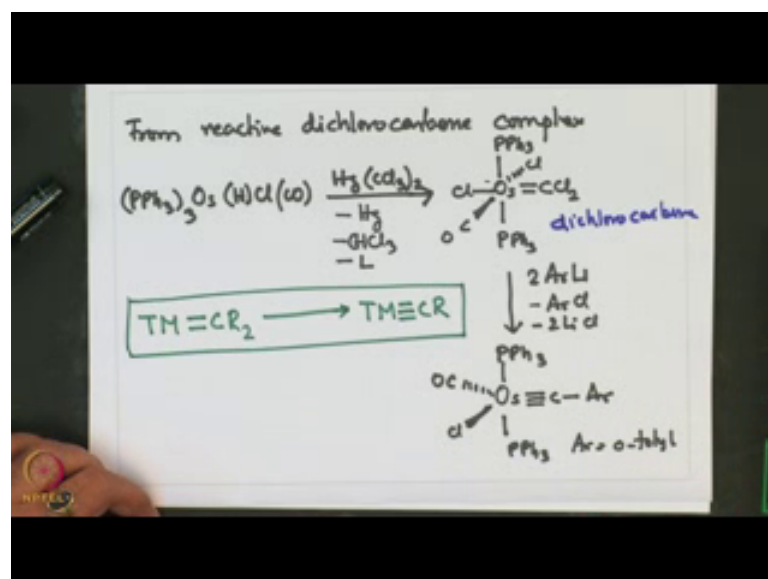 From reactive dichlorocarbene complex
(PPh3)3 Os (H)Cl(CO)
Hg(CCl3)2
- Hg
- CHCl3
- L
PPh3
Cl
Cl-Os=CCl2
OC
PPh3
dichlorocarbene
2 ArLi
- ArCl
- 2LiCl
TM=CR2 → TM≡CR
PPh3
OC Os≡C-Ar
Cl
PPh3
Ar = o-tolyl
NPTEL